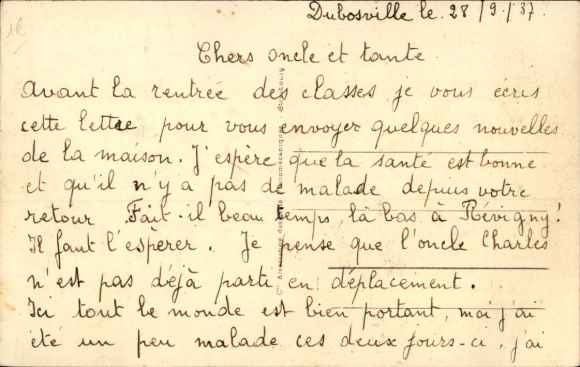 Dubosville le 28/9/37.
Chers oncle et tante
Avant la rentrée des classes je vous écris
cette lettre pour vous envoyer quelques nouvelles
de la maison. J'espère que la santé est bonne
et qu'il n'y a pas de malade depuis votre
retour Fait-il beau temps, là bas à Révigny?
Il faut l'espèrer. Je pense que l'oncle Charles
n'est pas déjà parti en déplacement.
Ici tout le monde est bien portant, moi j'ai
été un peu malade ces deux jours-ci, j'ai